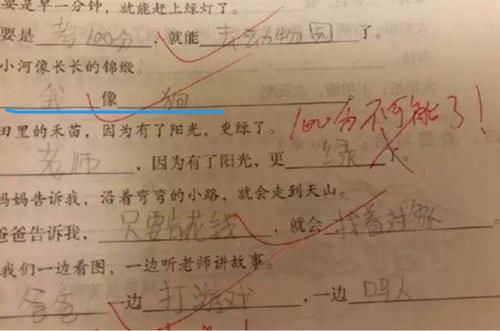 要是早一分钟，就能赶上绿灯了。
要是考100分，就能去动物园了。
小河像长长的锦缎。
我像狗
田里的禾苗，因为有了阳光，更绿了。
100分不可能了！
老师，因为有了阳光，更绿了。
妈妈告诉我，沿着弯弯的小路，就会走到天山。
爸爸告诉我，只要肯花钱，就会找着对象
我们一边看图，一边听老师讲故事。
爸爸一边打游戏，一边吗人